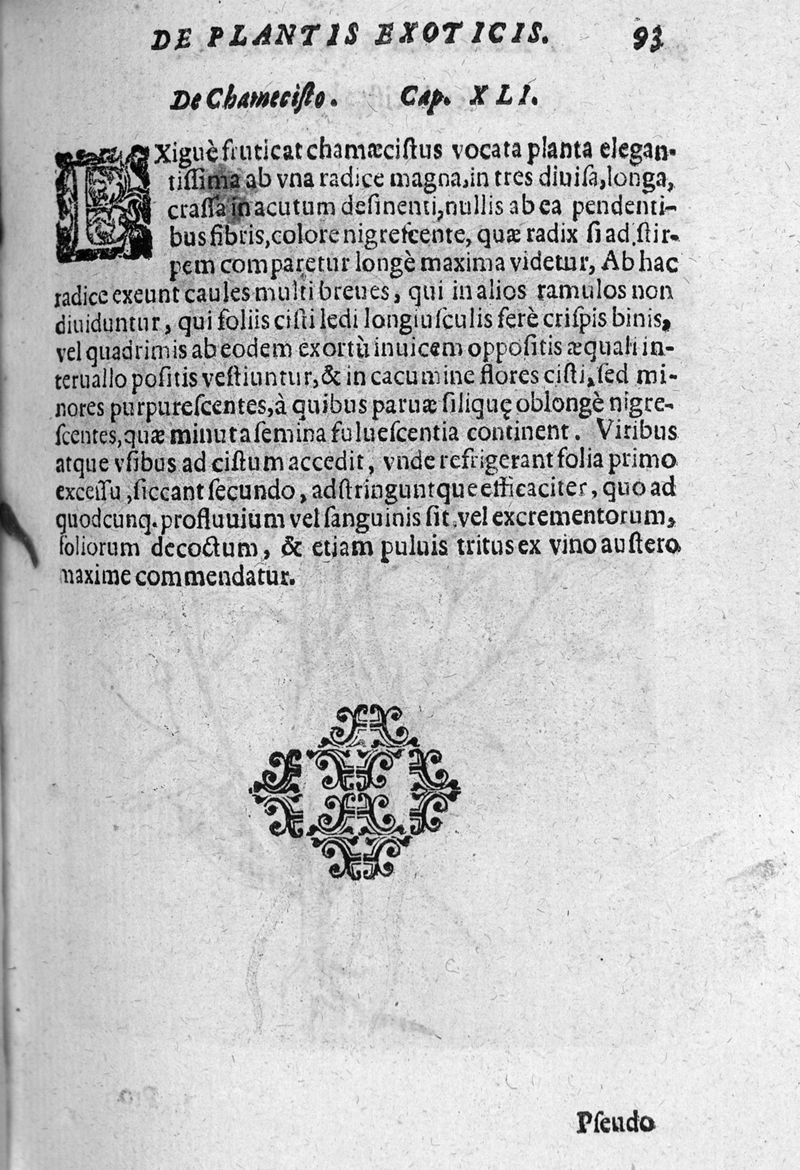 DE PLANTIS EXOTICIS. 93
De Chamæciſto. Cap. XLI.
EXiguè fruticat chamæciſtus vocata planta elegan-
tiſſima ab vna radice magna, in tres diuiſa, longa,
craſſa in acutum deſinenti, nullis ab ea pendenti-
bus fibris, colore nigreſcente, quæ radix ſi ad ſtir-
pem comparetur longè maxima videtur, Ab hac
radice exeunt caules multi breues, qui in alios ramulos non
diuiduntur, qui foliis ciſti ledi longiuſculis ferè criſpis binis,
vel quadrimis ab eodem exortù inuicem oppoſitis æquali in-
teruallo poſitis veſtiuntur, & in cacumine flores ciſti, ſed mi-
nores purpureſcentes, à quibus paruæ ſiliquę oblongè nigre-
ſcentes, quæ minuta ſemina fulueſcentia continent. Viribus
atque vſibus ad ciſtum accedit, vnde refrigerant folia primo
exceſſu, ſiccant ſecundo, adſtringuntque efficaciter, quo ad
quodcunq. profluuium vel ſanguinis ſit, vel excrementorum,
foliorum decoctum, & etiam puluis tritus ex vino auſtero
maxime commendatur.
Pſeudo